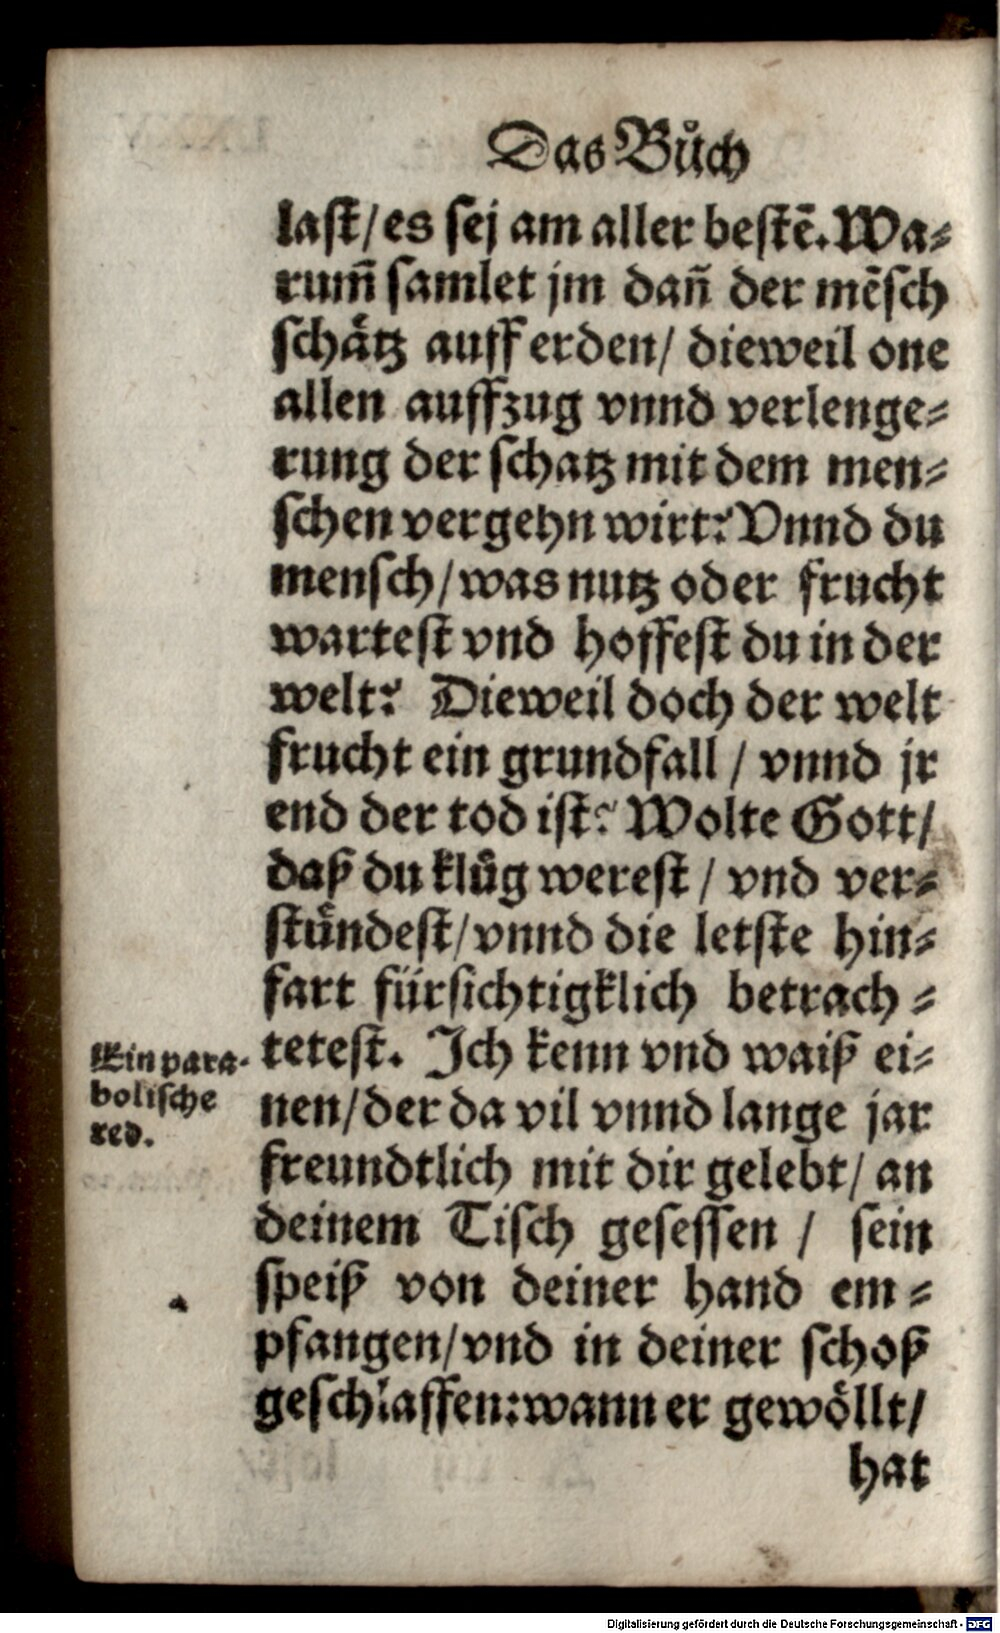 Das Bůch
last/es sej am aller bestẽ. Wa⸗
rum̃ samlet jm dañ der mẽsch
schätz auff erden/ dieweil one
allen auffzug vnnd verlenge⸗
rung der schatz mit dem men⸗
schen vergehn wirt? Vnnd du
mensch/was nutz oder frucht
wartest vnd hoffest du in der
welt? Dieweil doch der welt
frucht ein grundfall / vnnd jr
end der tod ist? Wolte Gott/
daß du klůg werest / vnd ver⸗
stündest/vnnd die letste hin⸗
fart fürsichtigklich betrach⸗
tetest. Ich kenn vnd waiß ei⸗
nen/der da vil vnnd lange jar
freundtlich mit dir gelebt/ an
deinem Tisch gesessen / sein
speiß von deiner hand em⸗
pfangen/vnd in deiner schoß
geschlaffen:wann er gewöllt/
hat
Ein para-
bolische
red.
Digitalisierung gefördert durch die Deutsche Forschungsgemeinschaft - DFG